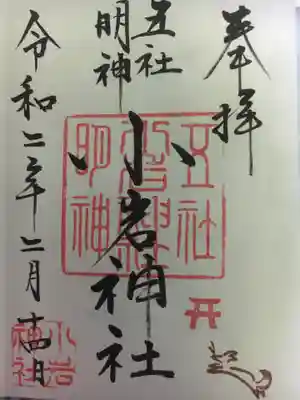 奉拝
五社
明神
小岩神社
令和二年二月吉日
五社
明神
小岩
神社